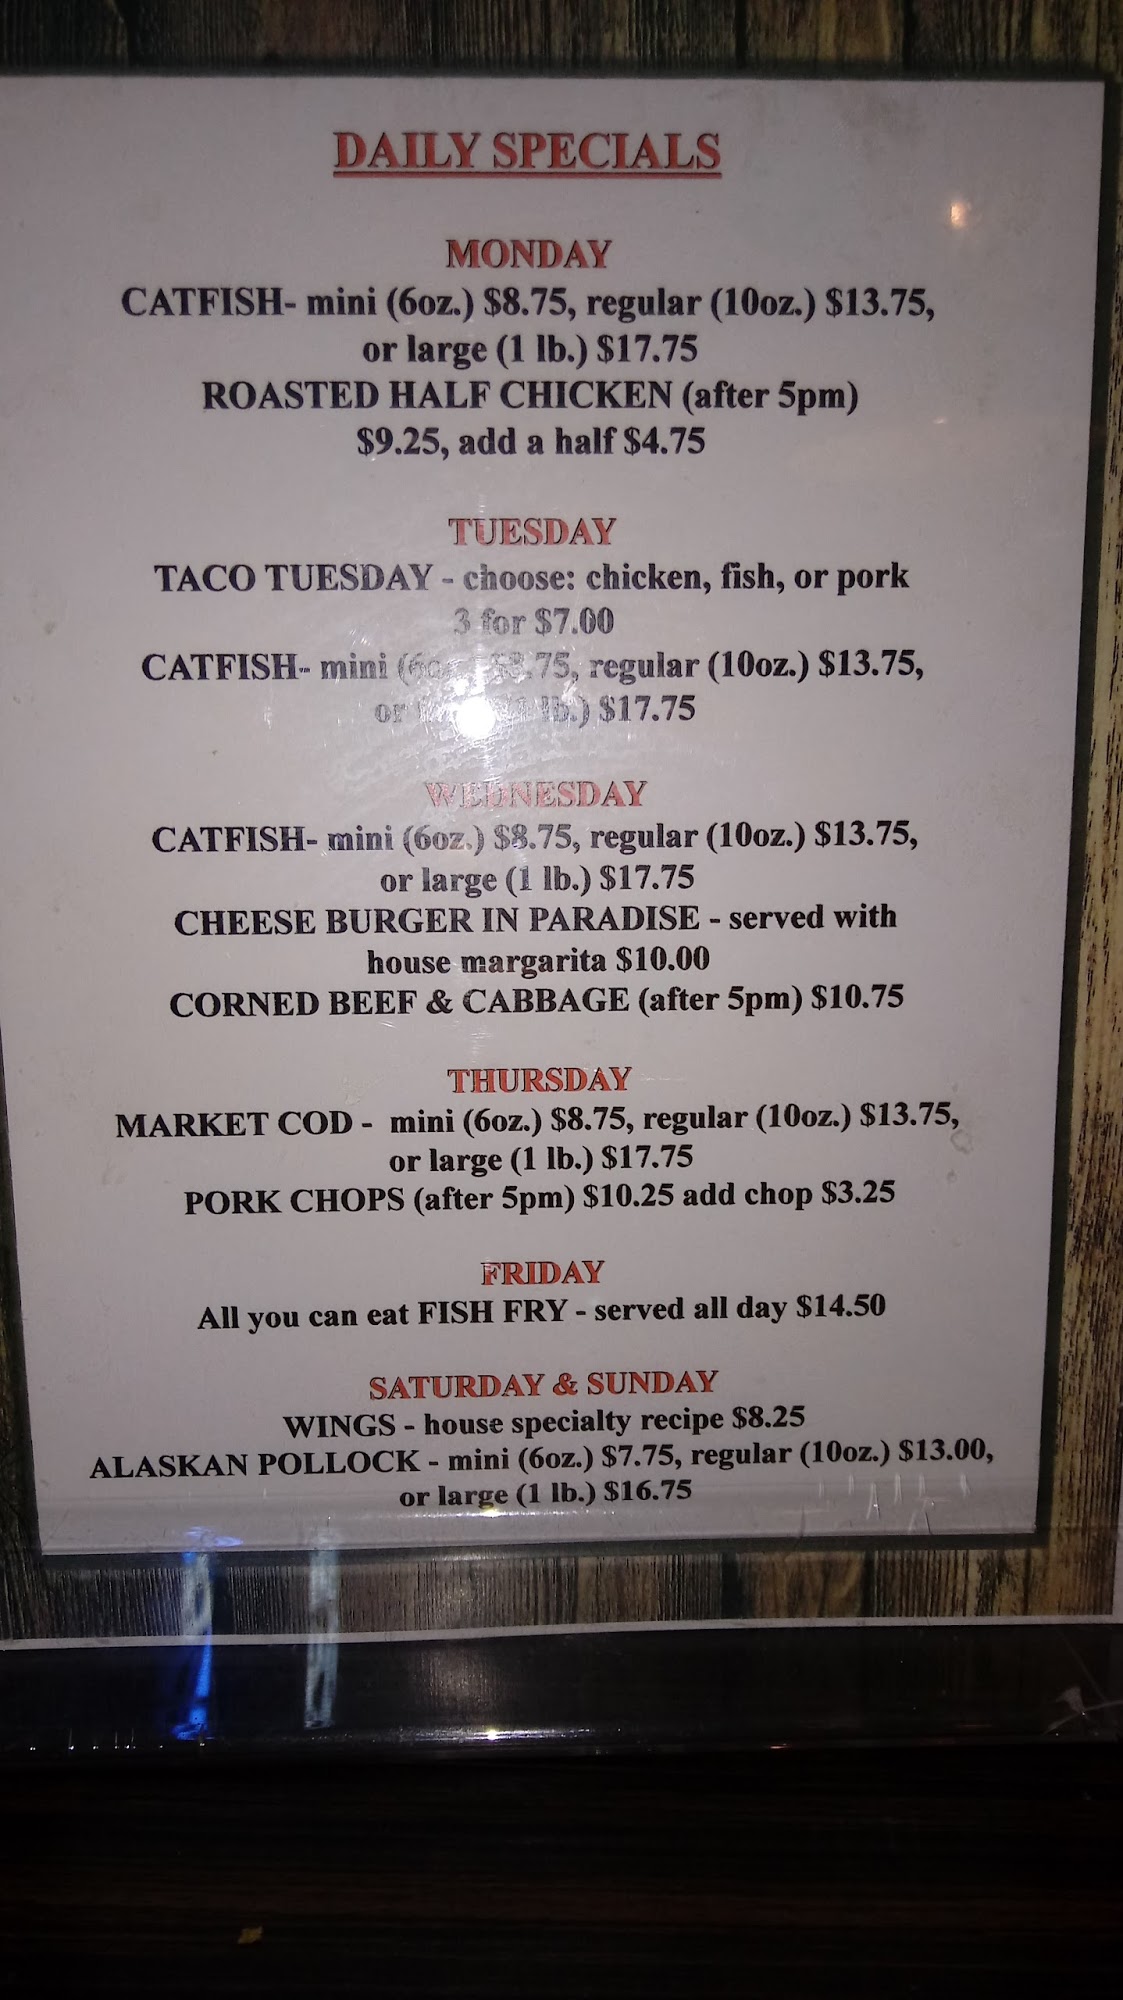 DAILY SPECIALS
MONDAY
CATFISH- mini (6oz.) $8.75, regular (10oz.) $13.75,
or large (1 lb.) $17.75
ROASTED HALF CHICKEN (after 5pm)
$9.25, add a half $4.75
TUESDAY
TACO TUESDAY - choose: chicken, fish, or pork
3 for $7.00
CATFISH- mini (6oz.) $8.75, regular (10oz.) $13.75,
or (1 lb.) $17.75
WEDNESDAY
CATFISH- mini (6oz.) $8.75, regular (10oz.) $13.75,
or large (1 lb.) $17.75
CHEESE BURGER IN PARADISE - served with
house margarita $10.00
CORNED BEEF & CABBAGE (after 5pm) $10.75
THURSDAY
MARKET COD - mini (6oz.) $8.75, regular (10oz.) $13.75,
or large (1 lb.) $17.75
PORK CHOPS (after 5pm) $10.25 add chop $3.25
FRIDAY
All you can eat FISH FRY - served all day $14.50
SATURDAY & SUNDAY
WINGS - house specialty recipe $8.25
ALASKAN POLLOCK - mini (6oz.) $7.75, regular (10oz.) $13.00,
or large (1 lb.) $16.75